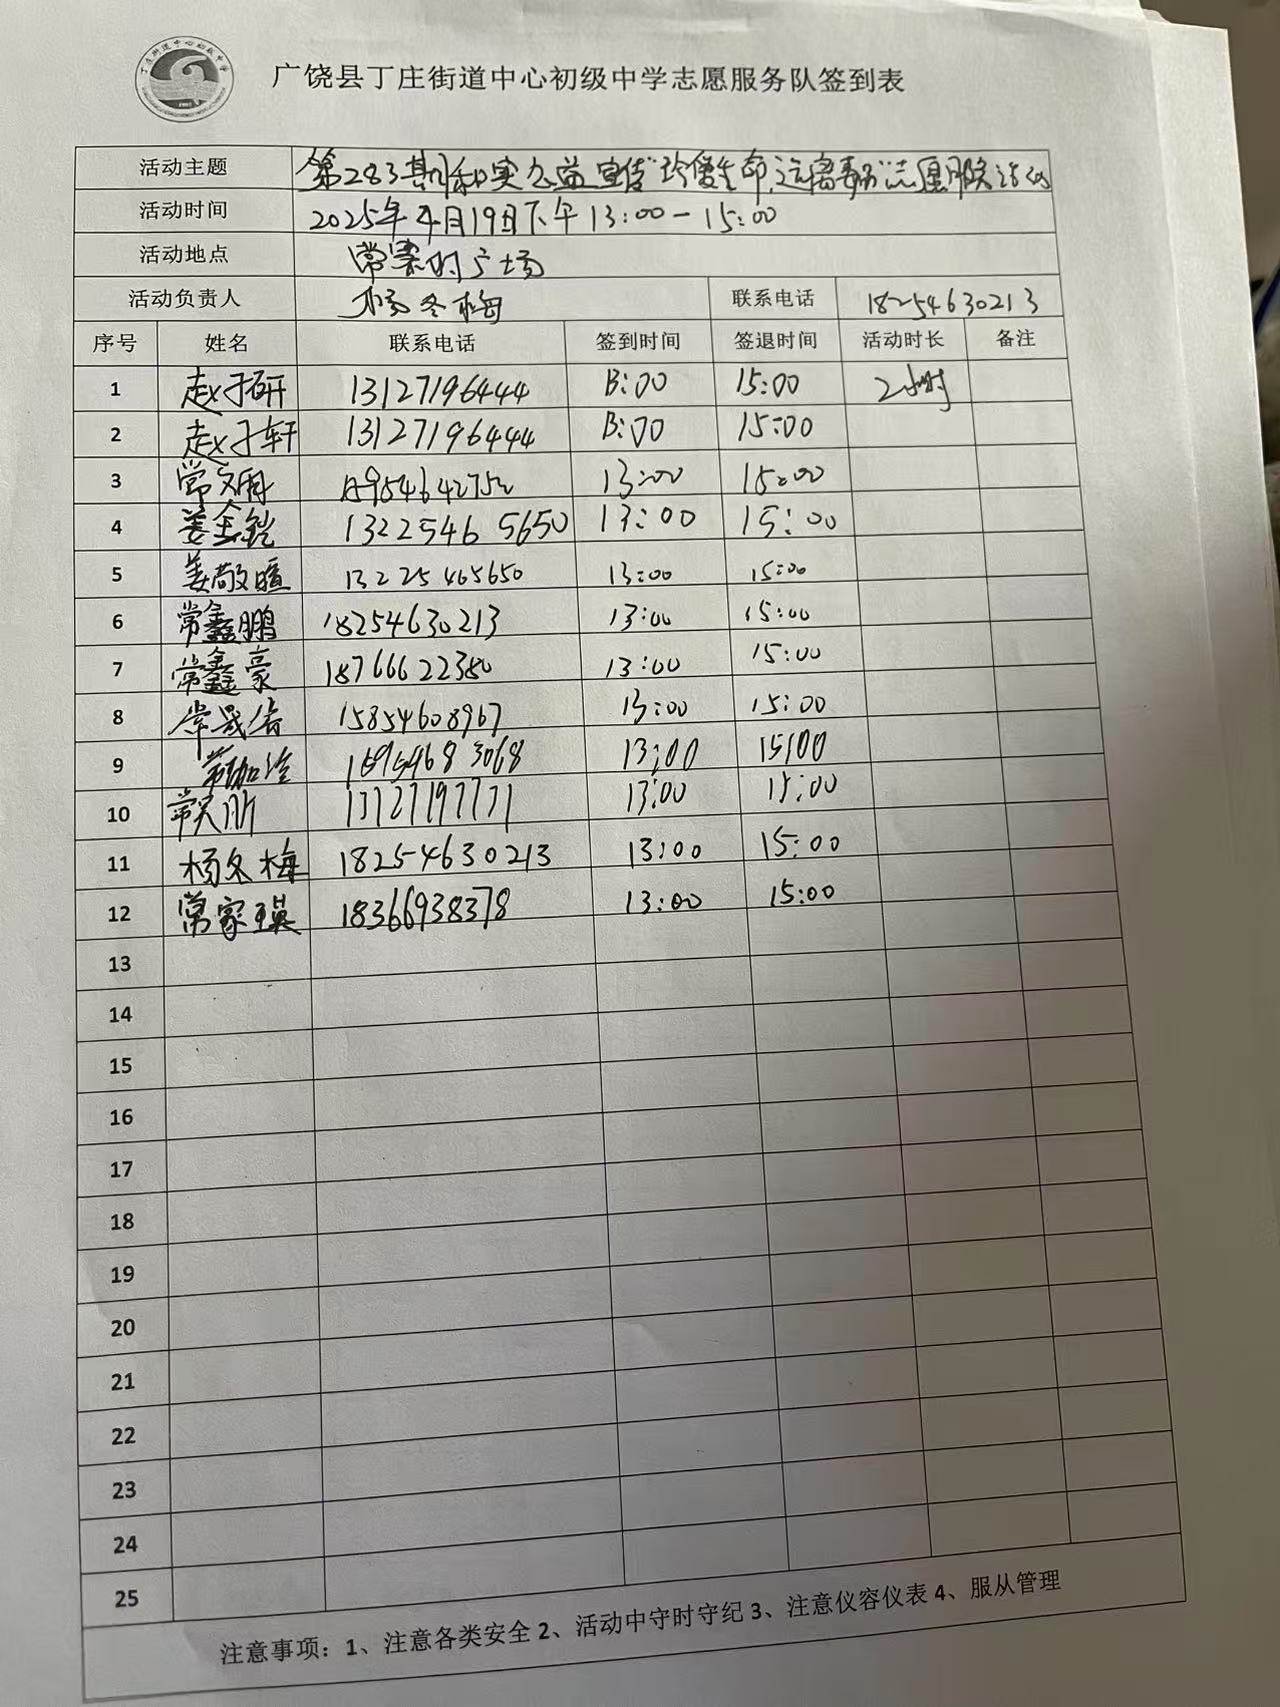 丁庄街道中心初级中学
广饶县丁庄街道中心初级中学志愿服务队签到表
活动主题 第283期和实公益宣传"珍爱生命,远离毒品"志愿服务活动
活动时间 2025年4月19日下午13:00-15:00
活动地点 常寨村广场
活动负责人 杨冬梅 联系电话 18254630213
序号 姓名 联系电话 签到时间 签退时间 活动时长 备注
1 赵子研 13127196444 13:00 15:00 2小时
2 赵子轩 13127196444 13:00 15:00
3 常文雨 15954642752 13:00 15:00
4 姜金铠 13225465650 13:00 15:00
5 姜敬暄 13225465650 13:00 15:00
6 常鑫鹏 18254630213 13:00 15:00
7 常鑫豪 18766622380 13:00 15:00
8 15854608967 13:00 15:00
9 15954683068 13:00 15:00
10 13127197771 13:00 15:00
11 杨冬梅 18254630213 13:00 15:00
12 常家瑛 18366938378 13:00 15:00
13
14
15
16
17
18
19
20
21
22
23
24
25
注意事项:1、注意各类安全 2、活动中守时守纪 3、注意仪容仪表 4、服从管理